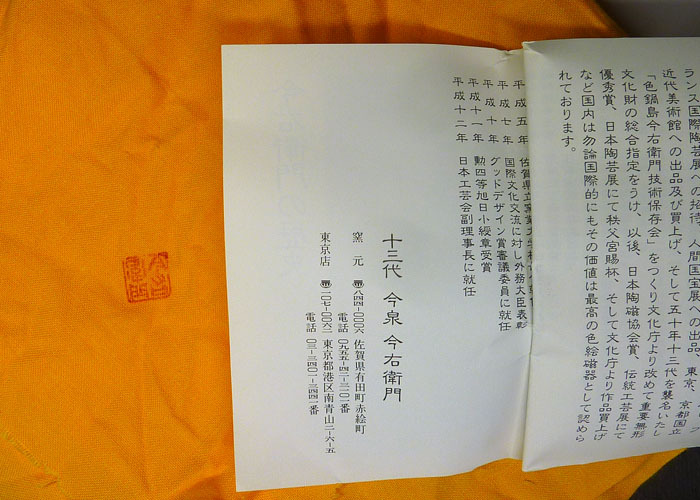 ランス国際陶芸展への招待、人間国宝展への出品、東京、京都国立
近代美術館への出品及び買上げ、そして五十年十三代を襲名いたし
「色鍋島今右衛門技術保存会」をつくり文化庁より改めて重要無形
文化財の総合指定をうけ、以後、日本陶磁協会賞、伝統工芸展にて
優秀賞、日本陶芸展にて秩父宮賜杯、そして文化庁より作品買上げ
など国内は勿論国際的にもその価値は最高の色絵磁器として認めら
れております。
平成五年 佐賀県立窯業大学校
平成七年 国際文化交流に対し外務大臣表彰
平成十年 グッドデザイン賞審議委員に就任
平成十一年 勲四等旭日小綬章受賞
平成十二年 日本工芸会副理事長に就任
十三代 今泉 今右衛門
窯元 〒八四四-〇〇〇六 佐賀県有田町赤絵町
電話 〇九五五-四二-三一〇一番
東京店 〒一〇七-〇〇六二 東京都港区南青山二-六-五
電話 〇三-三四〇一-三四四一番